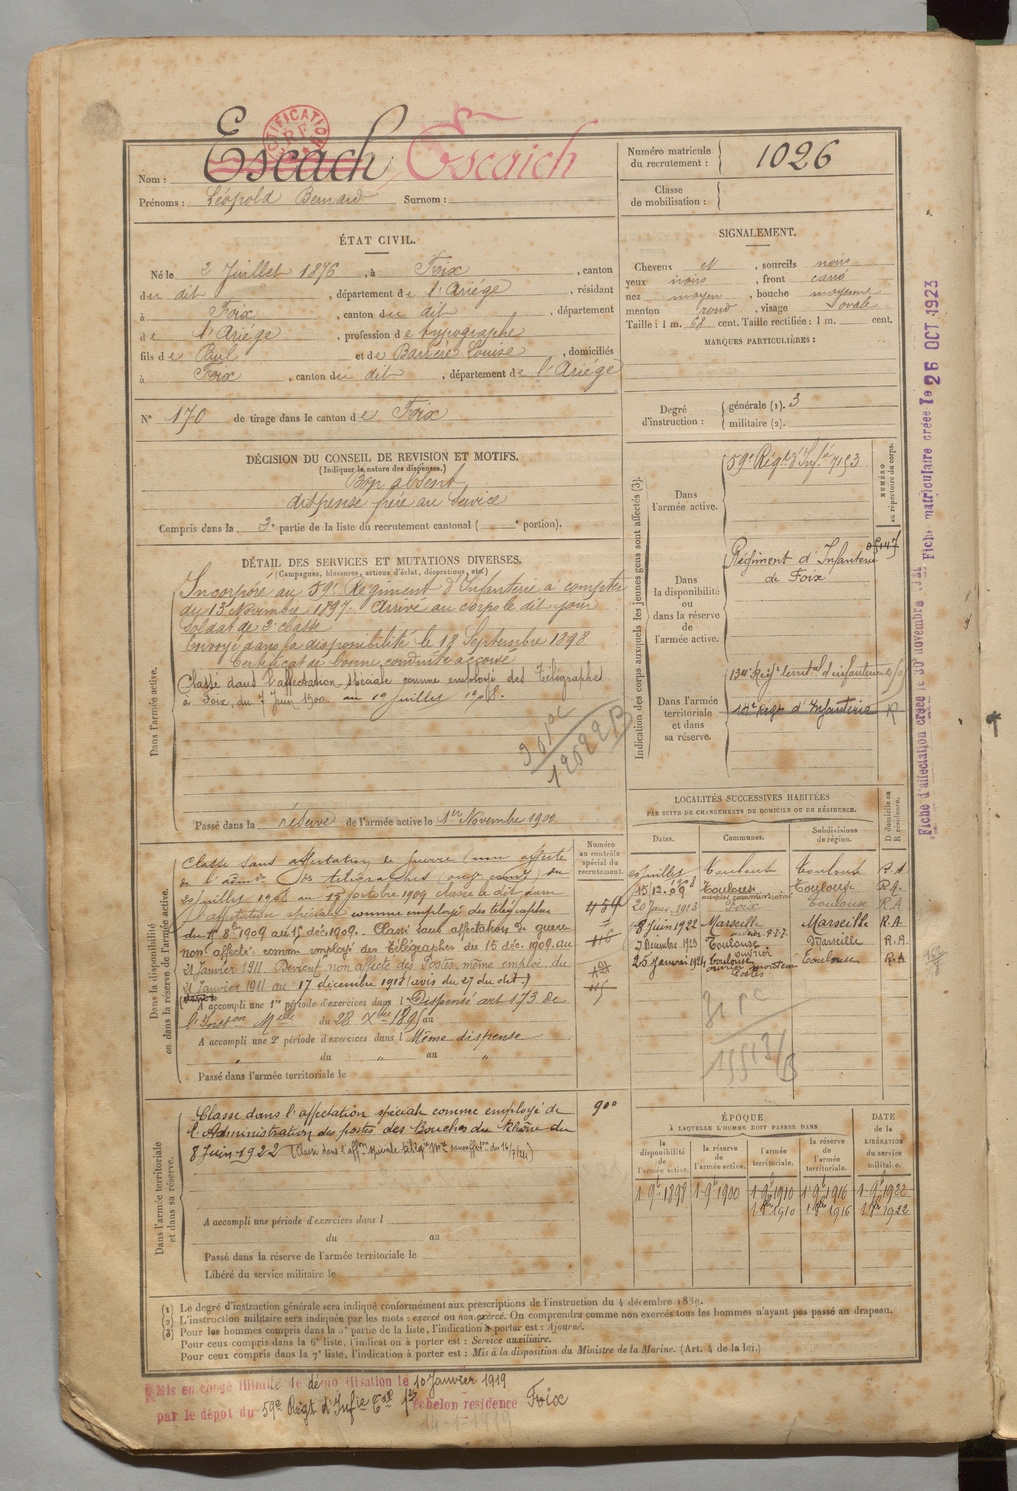 RECTIFICATION
R F
Nom : Escach Escaich
Prénoms : Léopold Bernard Surnom :
Numéro matricule du recrutement : 1026
Classe de mobilisation :
ÉTAT CIVIL.
Né le 2 Juillet 1876, à Foix, canton
du dit, département de l'Ariège, résidant
à Foix, canton du dit, département
de l'Ariège, profession de typographe
fils de Paul et de Barrière Louise, domiciliés
à Foix, canton du dit, département de l'Ariège
N° 170 de tirage dans le canton de Foix
SIGNALEMENT.
Cheveux et, sourcils noirs
yeux noirs, front carré
nez moyen, bouche moyenne
menton rond, visage ovale
Taille : 1 m. 68 cent. Taille rectifiée : 1 m. cent.
MARQUES PARTICULIÈRES :
Degré d'instruction : générale (1). 3
militaire (2).
DÉCISION DU CONSEIL DE REVISION ET MOTIFS.
(Indiquer la nature des dispenses.)
Bon absent
dispensé frère au service
Compris dans la 3e partie de la liste du recrutement cantonal ( e portion).
DÉTAIL DES SERVICES ET MUTATIONS DIVERSES.
(Campagnes, blessures, actions d'éclat, décorations, etc.)
Dans l'armée active.
Incorporé au 59e Régiment d'Infanterie à compter
du 13 Novembre 1897. Arrivé au corps le dit jour
Soldat de 2e classe
Envoyé dans la disponibilité le 18 Septembre 1898
Certificat de bonne conduite accordé
Classé dans l'affectation spéciale comme employé des Télégraphes
à Foix, du 7 Juin 1900 au 19 Juillet 1908.
Passé dans la réserve de l'armée active le 1er Novembre 1900
Indication des corps auxquels les jeunes gens sont affectés (3).
NUMÉRO au répertoire du corps.
Dans l'armée active.
59e Régt d'Infie 7153
Dans la disponibilité ou dans la réserve de l'armée active.
Régiment d'Infanterie
de Foix
Dans l'armée territoriale et dans sa réserve.
134e Régt territal d'infanterie
Régt d'Infanterie
LOCALITÉS SUCCESSIVES HABITÉES
PAR SUITE DE CHANGEMENTS DE DOMICILE OU DE RÉSIDENCE.
Dates. Communes. Subdivisions de région. D domicile ou R résidence.
20 Juillet 1908 Toulouse Toulouse R.A
15.12.09 Toulouse Toulouse R.A.
20 Janv. 1913 Foix Toulouse R.A
8 Juin 1922 Marseille Marseille R.A.
7 Décembre 1923 Toulouse Marseille R.A.
25 Janvier 1924 Toulouse Toulouse R.A
Dans la disponibilité ou dans la réserve de l'armée active.
Numéro au contrôle spécial du recrutement.
Classé sans affectation de guerre (non affecté
de l'admon des télégraphes du
20 Juillet 1908 au 15 octobre 1909 classé a dit dans
l'affectation spéciale comme employé des télégraphes
du 1er 8bre 1909 au 15 déc. 1909. Classé sans affectation de guerre
non affecté comme employé des Télégraphes du 15 déc. 1909 au
21 Janvier 1911. Devient non affecté des Postes, même emploi, du
21 Janvier 1911 au 17 décembre 1918 (avis du 27 du dit)
A accompli une 1re période d'exercices dans l Dispensé art 173 de
l'Inston Mlle du 28 Xbre 1895 au
A accompli une 2e période d'exercices dans l Même dispense
du " au "
Passé dans l'armée territoriale le
Dans l'armée territoriale et dans sa réserve.
Classé dans l'affectation spéciale comme employé de
l'Administration des postes des Bouches du Rhône du
8 Juin 1922
900
A accompli une période d'exercices dans l
du au
Passé dans la réserve de l'armée territoriale le
Libéré du service militaire le
ÉPOQUE
À LAQUELLE L'HOMME DOIT PASSER DANS
DATE de la LIBÉRATION du service militaire.
la disponibilité de l'armée active. la réserve de l'armée active. l'armée territoriale. la réserve de l'armée territoriale.
1 9bre 1898 1 9bre 1900 1 9bre 1910 1 9bre 1916 1 9bre 1922
1 8bre 1910 1 8bre 1916 1 8bre 1922
(1) Le degré d'instruction générale sera indiqué conformément aux prescriptions de l'instruction du 4 décembre 1889.
(2) L'instruction militaire sera indiquée par les mots : exercé ou non exercé. On comprendra comme non exercés tous les hommes n'ayant pas passé au drapeau.
(3) Pour les hommes compris dans la 5e partie de la liste, l'indication à porter est : Ajourné.
Pour ceux compris dans la 6e liste, l'indication à porter est : Service auxiliaire.
Pour ceux compris dans la 7e liste, l'indication à porter est : Mis à la disposition du Ministre de la Marine. (Art. 4 de la loi.)
Mis en congé illimité de démobilisation le 10 Janvier 1919
par le dépôt du 59e Régt d'Infie échelon résidence Foix
14-1-1919
Fiche d'affectation créée le 30 novembre
Fiche matriculaire créée le 26 OCT 1923